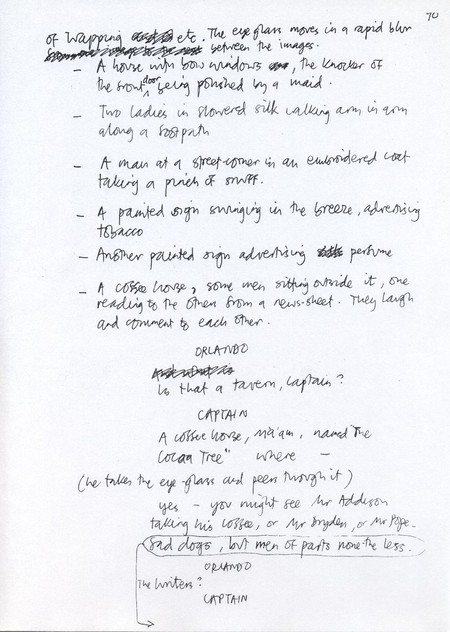 70
of Wapping etc. The eyeglass moves in a rapid blur
between the images.
– A house with bow windows, the knocker of
the front door being polished by a maid.
– Two ladies in flowered silk walking arm in arm
along a footpath
– A man at a street corner in an embroidered coat
taking a pinch of snuff.
– A painted sign swinging in the breeze, advertising
tobacco
– Another painted sign advertising perfume
– A coffee house, some men sitting outside it, one
reading to the others from a news-sheet. They laugh
and comment to each other.
ORLANDO
Is that a tavern, Captain?
CAPTAIN
A coffee house, Ma'am, named "The
Cocoa Tree" where –
(he takes the eye-glass and peers through it)
yes – you might see Mr Addison
taking his coffee, or Mr Dryden, or Mr Pope.
Sad dogs, but men of parts none the less.
ORLANDO
The writers?
CAPTAIN